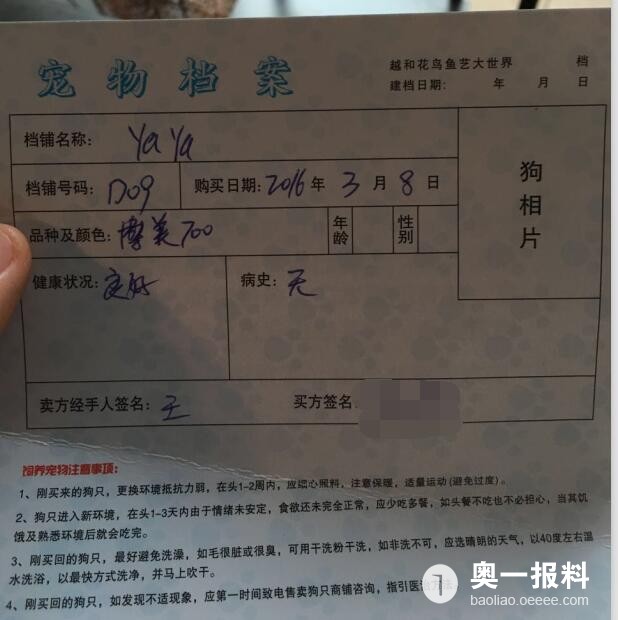 宠物档案
越和花鸟鱼艺大世界 档
建档日期: 年 月 日
档铺名称: YaYa
档铺号码: D09 购买日期: 2016年 3月 8日
品种及颜色: 博美700 年龄 性别
狗相片
健康状况: 良好 病史: 无
卖方经手人签名: 王 买方签名
饲养宠物注意事项:
1、刚买来的狗只，更换环境抵抗力弱，在头1-2周内，应细心照料，注意保暖，适量运动(避免过度)。
2、狗只进入新环境，在头1-3天内由于情绪未安定，食欲还未完全正常，应少吃多餐，如头餐不吃也不必担心，当其饥
饿及熟悉环境后就会吃完。
3、刚买回的狗只，最好避免洗澡，如毛很脏或很臭，可用干洗粉干洗，如非洗不可，应选晴朗的天气，以40度左右温
水洗浴，以最快方式洗净，并马上吹干。
4、刚买回的狗只，如发现不适现象，应第一时间致电售卖狗只商铺咨询，指引医
奥一报料
baoliao.oeeee.com